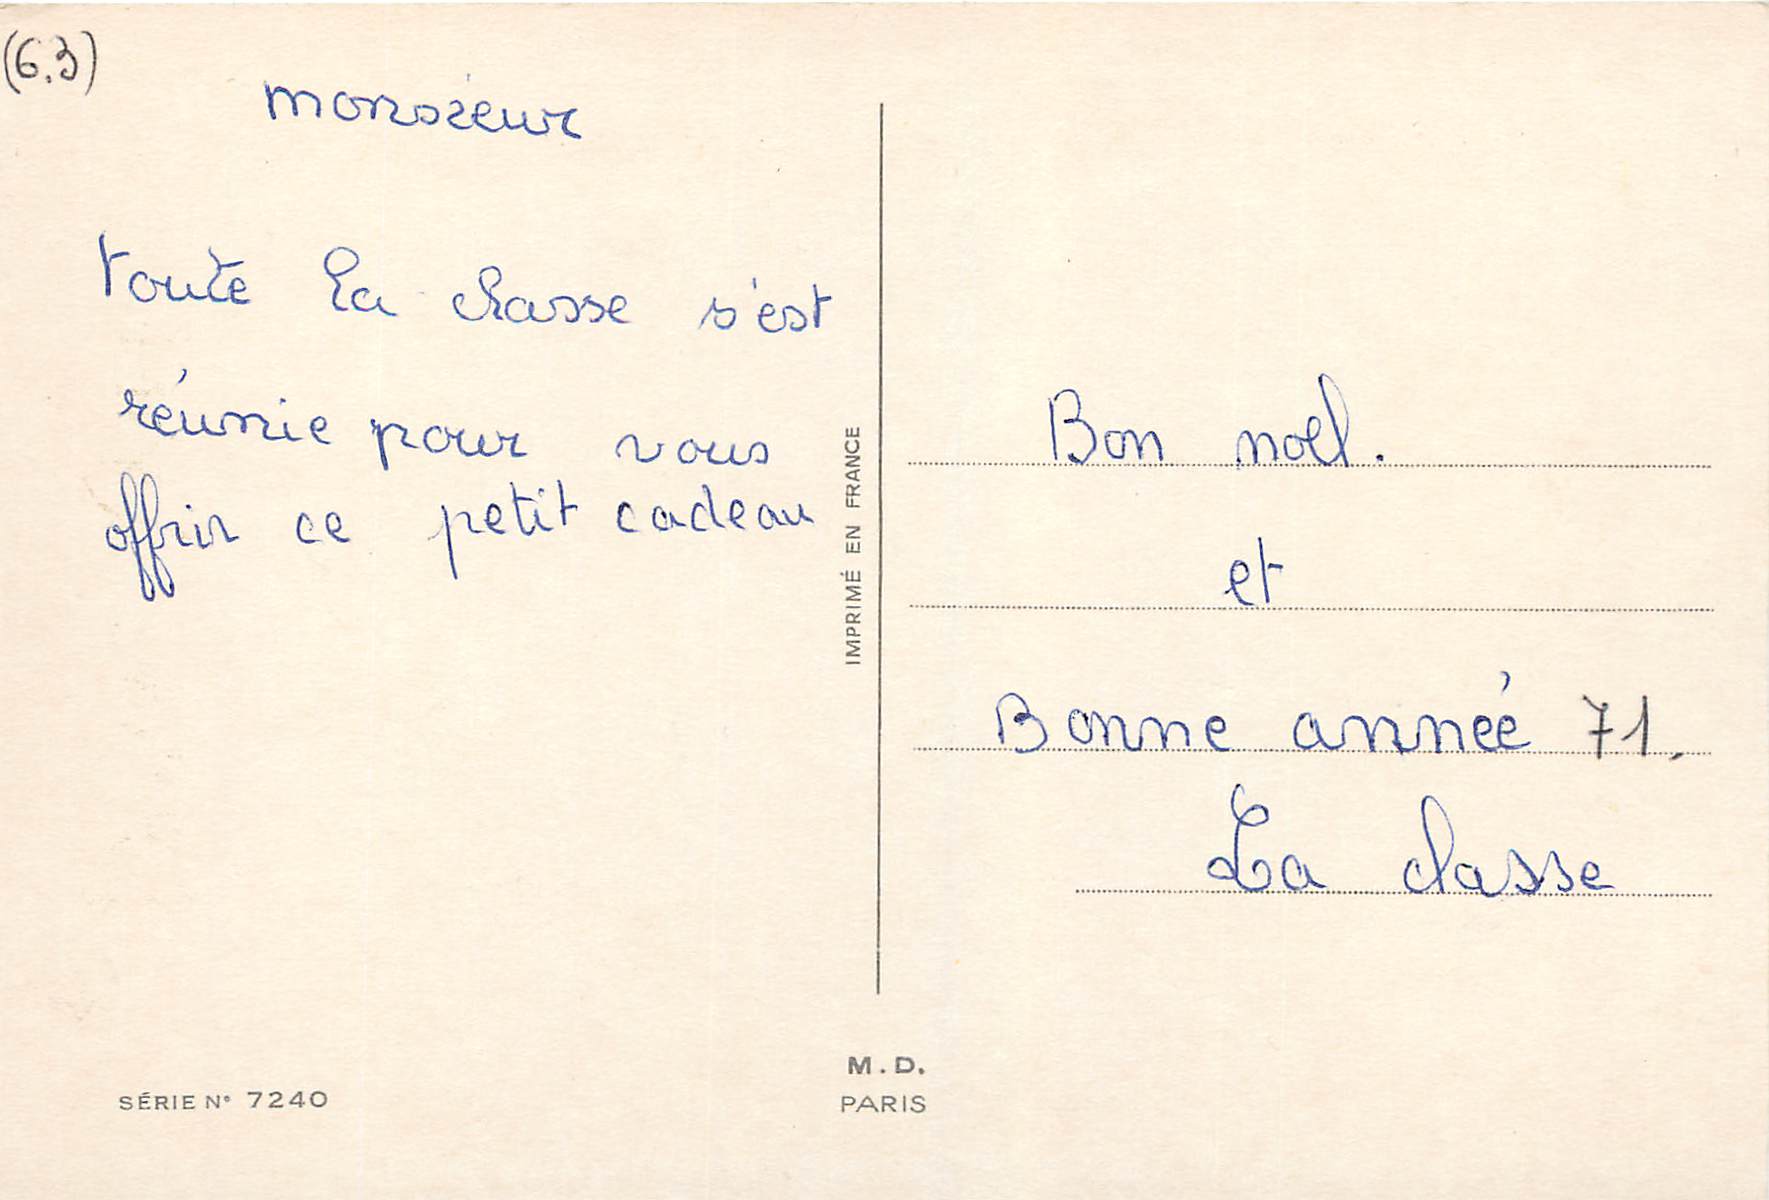 (6.3)
monsieur
toute la classe s'est
réunie pour vous
offrir ce petit cadeau
IMPRIMÉ EN FRANCE
Bon noel.
et
Bonne année 71.
La classe
M.D.
PARIS
SÉRIE N° 7240